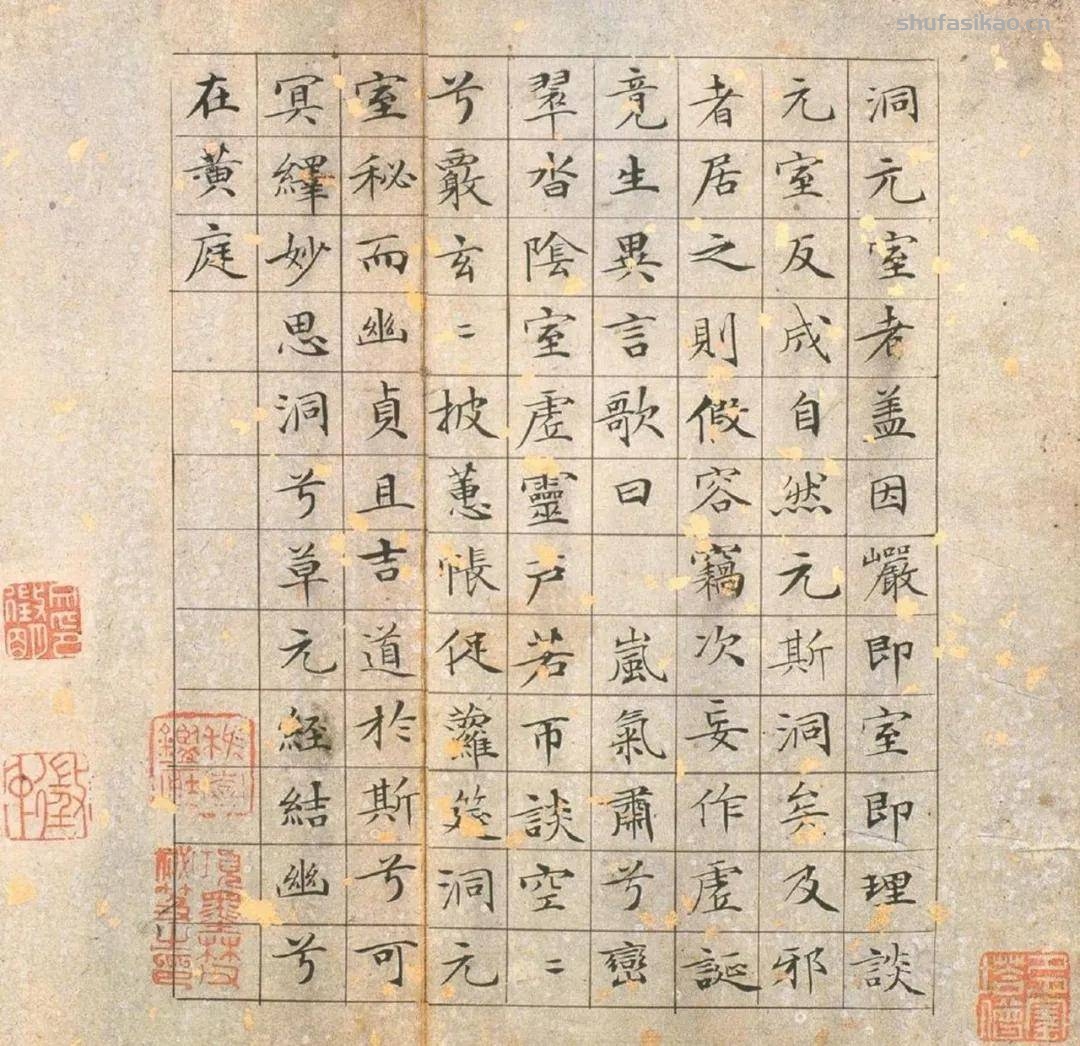 shufasikao.cn
洞元室者盖因巖即室即理談
元室反成自然元斯洞矣及邪
者居之則假容竊次妄作虗誕
竟生異言歌曰 嵐氣肅兮巒
翠沓陰室虗靈戶若帀談空〻
兮覈玄〻披蕙帳促蘿筵洞元
室秘而幽貞且吉道於斯兮可
冥繹妙思洞兮草元經結幽兮
在黄庭
項墨林父
秘笈之印